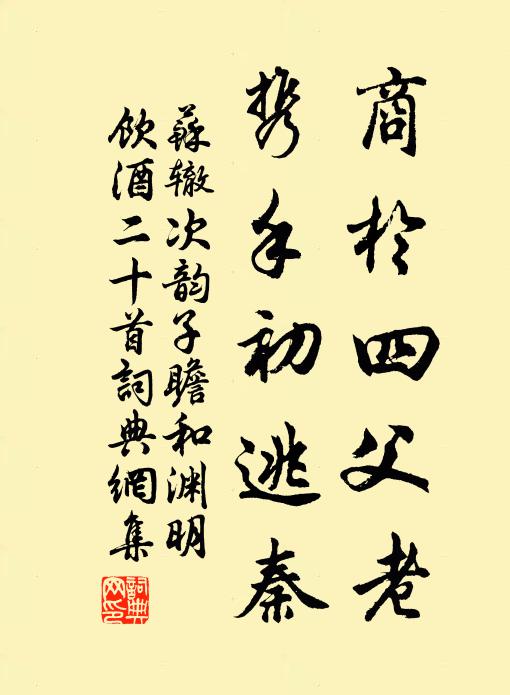 商於四父老
携手初逃秦
蘇辙次韵子瞻和渊明
饮酒二十首詞典網集
詞典网印